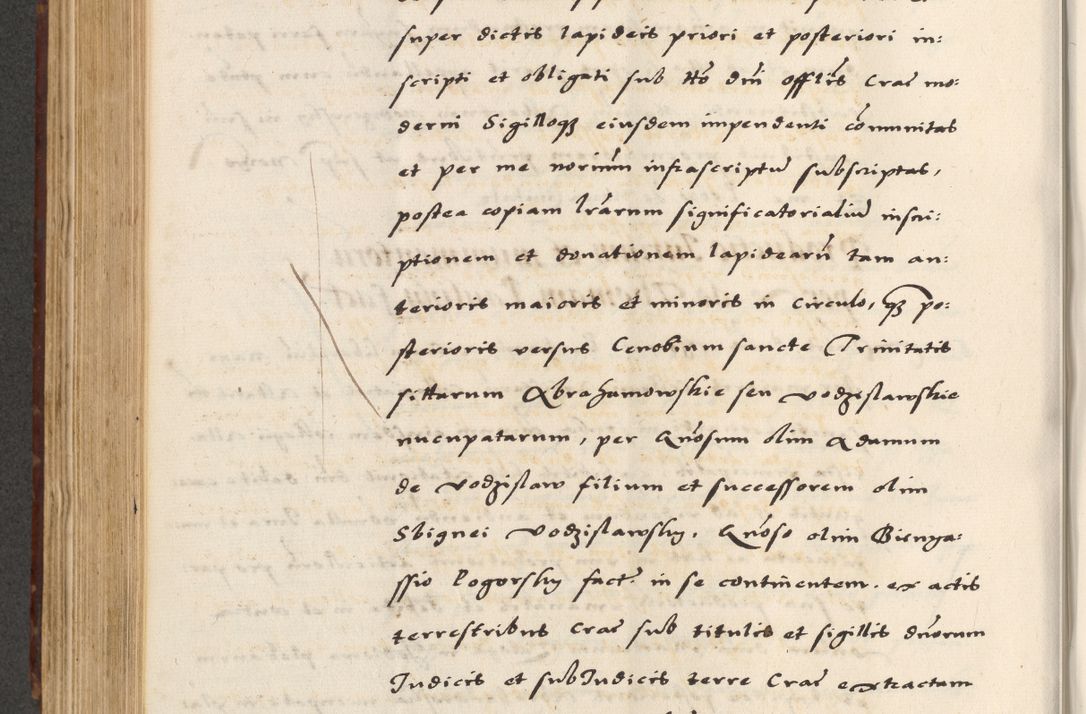 super dictis lapideis priori et posteriori in:
scripti et obligati sub tto dni offlis Crac mo:
derni Sigilloq3 eiusdem impendenti comunitas
et per me norium infrascriptu subscriptas,
postea copiam lrarum significatorialiu inscri:
ptionem et donationem lapidearu tam an:
terioris maioris et minoris in circulo, q3 po:
sterioris versus Cenobium sancte Trinitatis
sittarum Abrahamowskie seu vodzislawskie
nucupatarum, per Gnosum olim Adamum
de vodzislaw filium et successorem olim
Sbignei vodzislawsky, Gnoso olim Bienya:
ssio Pogorsky fact. in se continentem. ex actis
terrestribus Crac sub titulis et sigillis dnorum
Judicis et subJudicis terre Crac extractam